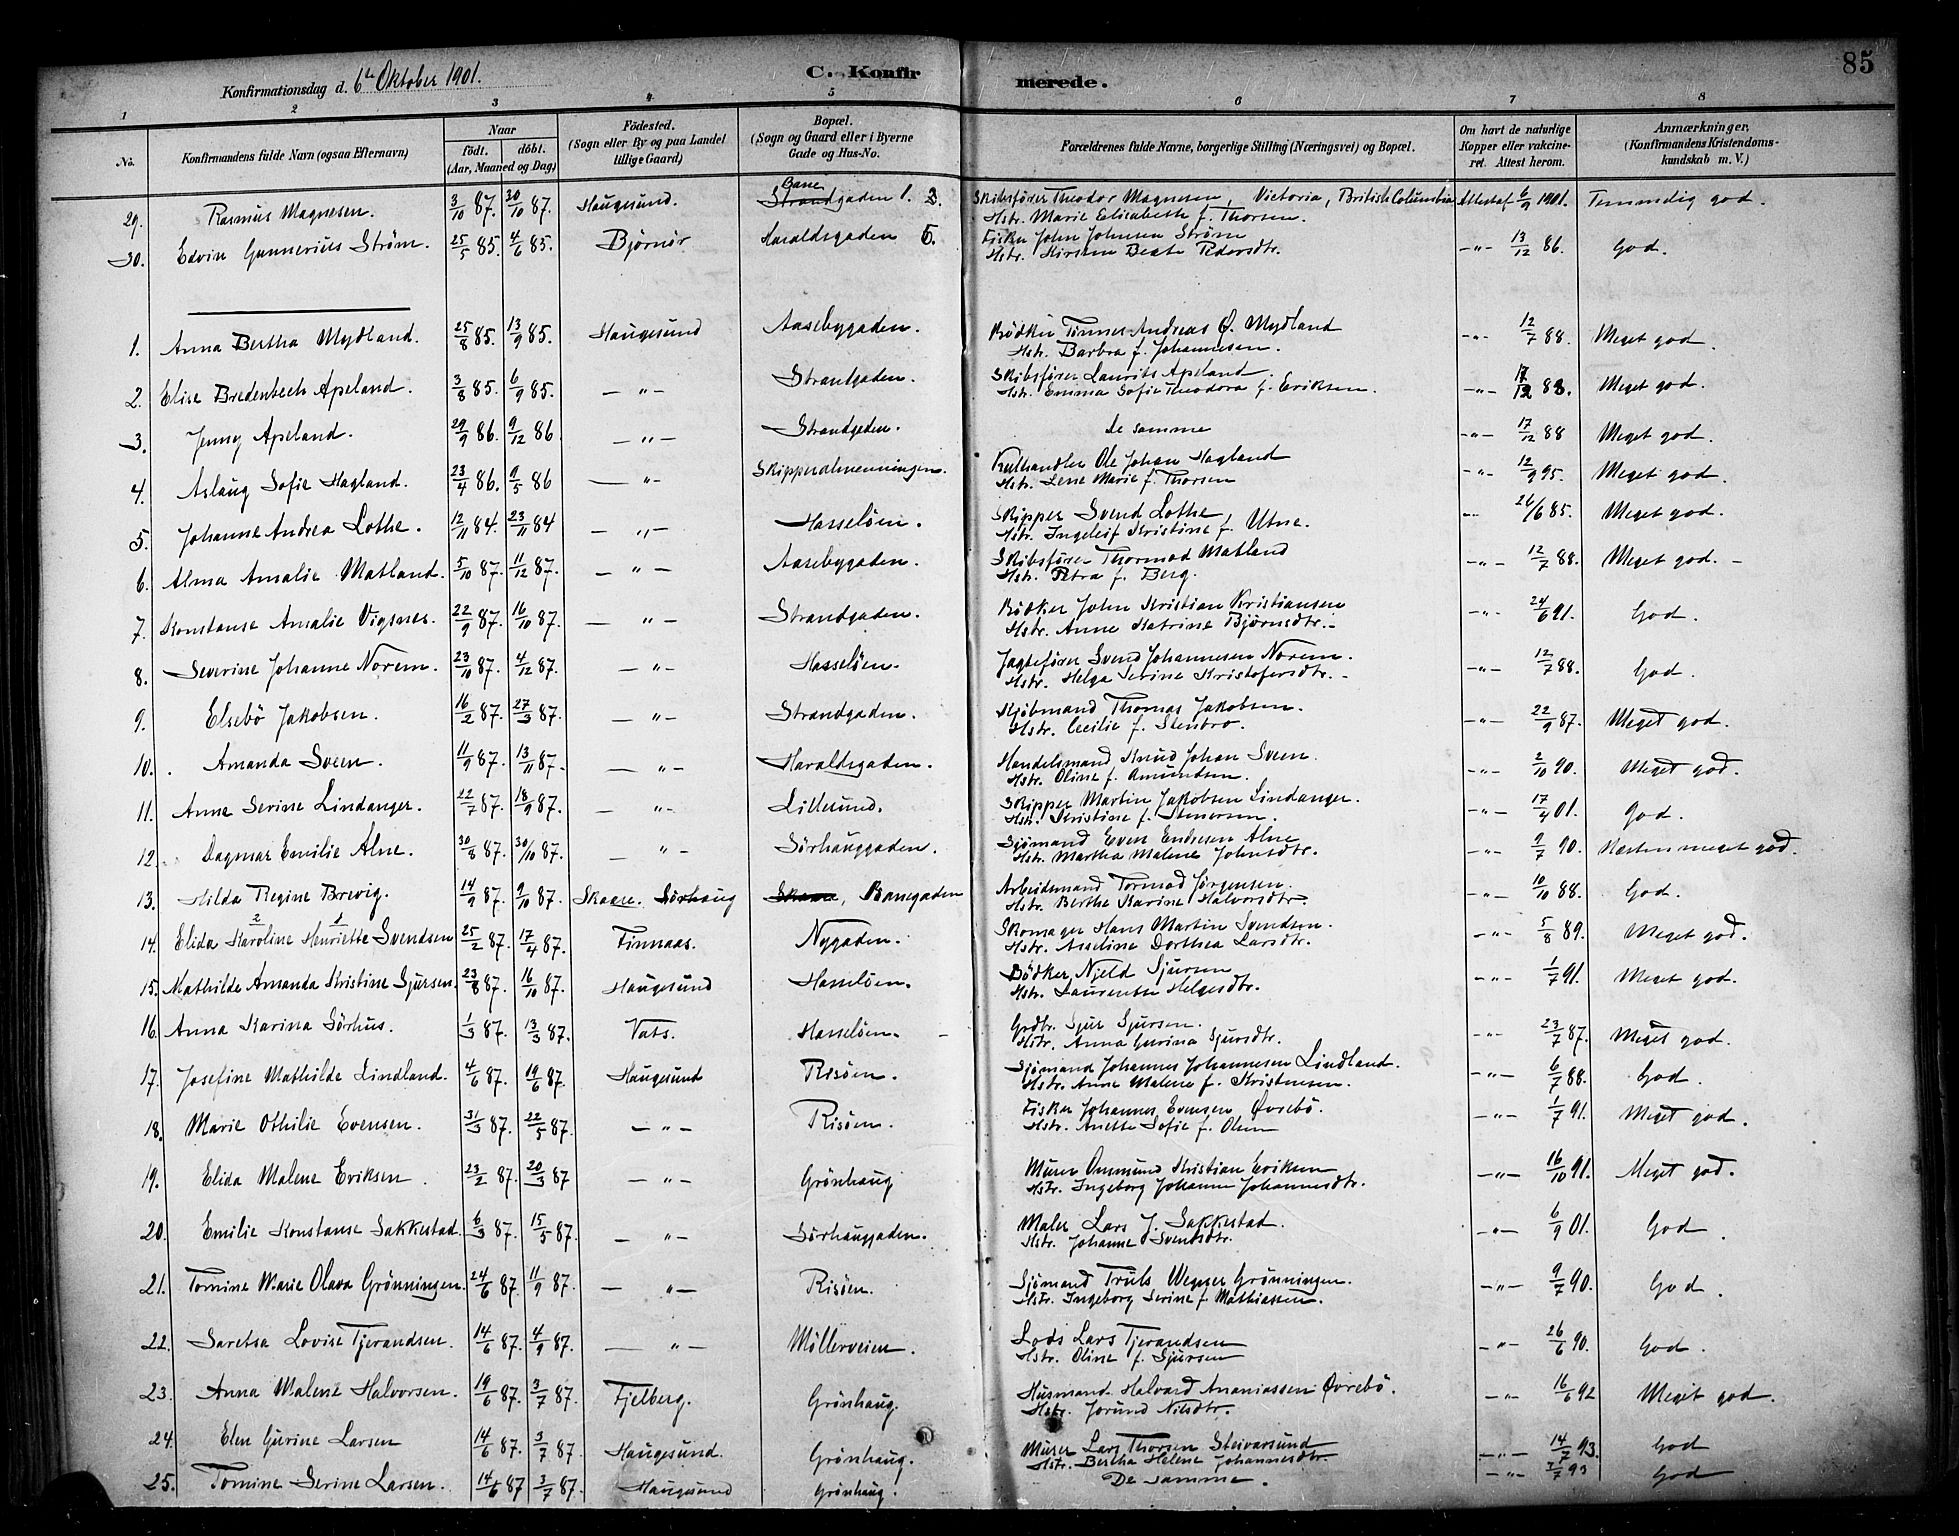 Konfirmationsdag d. 6te Oktober 1901.
C. Konfirmerede.
85
1 2 3 4 5 6 7 8
No. Konfirmandens fulde Navn (ogsaa Efternavn) Naar födt. döbt. (Aar, Maaned og Dag) Födested. (Sogn eller By og paa Landet tillige Gaard) Bopæl. (Sogn og Gaard eller i Byerne Gade og Hus-No. Forældrenes fulde Navne, borgerlige Stilling (Næringsvei) og Bopæl. Om havt de naturlige Kopper eller vaccineret. Attest herom. Anmærkninger, (Konfirmandens Kristendomskundskab m. V.)
29. Rasmus Magnesen. 3/10 87. 30/10 87. Haugesund. Strandgaden Bane 1. 3. Skibsfører Theodor Magnesen, Victoria, British Columbia Attest af 6/9 1901. Temmelig god.
Hstr. Marie Elisabeth f. Thorsen.
30. Edvin Gunnerius Strøm. 25/5 85. 4/6 85. Bjørnør Haraldsgaden 5. Fisker John Johnsen Strøm -"- 13/12 86. God.
Hstr. Kirsten Beate Pedersdtr.
1. Anna Bertha Mydland. 25/8 85. 13/9 85. Haugesund Aasebygaden. Bødker Tønnes Andreas Ø. Mydland -"- 12/7 88. Meget god.
Hstr. Barbra f. Johannesen.
2. Elise Bredenbech Apeland. 3/8 85. 6/9 85. -"- Strandgaden. Skibsfører Laurits Apeland. -"- 17/12 88. Meget god.
Hstr. Emma Sofie Theodora f. Eriksen.
3. Jenny Apeland. 29/9 86. 9/12 86 -"- Strandgaden. De samme -"- 17/12 88 Meget god.
4. Aslaug Sofie Hagland. 23/4 86. 9/5 86 -"- Skipperalmenningen. Kulhandler Ole Johan Hagland -"- 12/9 95. Meget god.
Hstr. Lene Marie f. Thorsen
5. Johanne Andrea Lothe. 12/11 84. 23/11 84 -"- Hasseløen. Skipper Svend Lothe -"- 26/6 85. Meget god.
Hstr. Ingeleif Kristine f. Utne.
6. Alma Amalie Matland. 5/10 87. 11/12 87. -"- Aasebygaden. Skibsfører Thormod Matland -"- 12/7 88. Meget god. -
Hstr. Petra f. Berg.
7. Konstanse Amalie Vigsnes. 22/9 87. 16/10 87. -"- Strandgaden. Bødker John Kristian Kristiansen -"- 24/6 91. God.
Hstr. Anne Katrine Bjørnsdtr. -
8. Severine Johanne Norem. 23/10 87. 4/12 87. -"- Hasseløen. Jagtefører Svend Johannesen Norem. -"- 12/7 88. God.
Hstr. Helga Serine Kristofersdtr. -
9. Elsebö Jakobsen. 16/2 87. 27/3 87. -"- Strandgaden. Kjøbmand Thomas Jakobsen. -"- 22/9 87. Meget god.
Hstr. Cecilie f. Stenbro.
10. Amanda Sveen. 11/9 87. 13/11 87. -"- Haraldsgaden. Handelsmand Knud Johan Sveen. -"- 2/10 90. Meget god.
Hstr. Oline f. Amundsen.
11. Anne Serine Lindanger. 22/7 87. 18/9 87. -"- Lillesund. Skipper Martin Jakobsen Lindanger. -"- 17/4 01. God.
Hstr. Kristine f. Stenersen.
12. Dagmar Emilie Alne. 30/8 87. 30/10 87. -"- Sørhauggaden. Sjømand Even Endresen Alne -"- 9/7 90. Næsten meget god.
Hstr. Martha Malene Johnsdtr.
13. Hilda Regine Brevig. 14/9 87. 9/10 87. Skaare. Sørhaug Skaare, Banegaden Arbeidsmand Tormod Jørgensen. -"- 10/10 88. God.
Hstr. Berthe Karine Halvorsdtr.
14. Elida Karoline 2 Henriette 1 Svendsen 25/2 87. 17/4 87. Finnaas. Nygaden. Skomager Hans Martin Svendsen. -"- 5/8 89. Meget god.
Hstr. Asseline Dorthea Larsdtr.
15. Mathilde Amanda Kristine Sjursen. 23/8 87. 16/10 87. Haugesund Hasseløen. Bødker Njeld Sjursen -"- 1/7 91. Meget god.
Hstr. Laurentse Helgesdtr.
16. Anna Karina Sörhus. 1/3 87. 13/3 87. Vats. Hasseløen. - Grdbr. Sjur Sjursen. -"- 23/7 87. Meget god.
Hstr. Anna Gurina Sjursdtr.
17. Josefine Mathilde Lindland. 4/6 87. 19/6 87. Haugesund Risøen. Sjømand Johannes Johannesen Lindland. -"- 6/7 88. God.
Hstr. Anne Malene f. Kristensen.
18. Marie Othilie Evensen. 31/3 87. 22/5 87. -"- Risøen. Fisker Johannes Evensen Øvrebö. -"- 1/7 91. Meget god.
Hstr. Anette Sofie f. Olsen
19. Elida Malene Eriksen. 23/2 87. 20/3 87 -"- Grønhaug Murer Ommund Kristian Eriksen -"- 16/10 91. Meget god.
Hstr. Ingeborg Johanne Johannesdtr.
20. Emilie Konstanse Sakkestad. 6/3 87. 15/5 87. -"- Sørhauggaden. Maler Lars J. Sakkestad. -"- 6/9 01. God.
Hstr. Johanne Svendsdtr.
21. Tomine Marie Olava Grönningen. 24/6 87. 11/9 87. -"- Risøen. Sjömand Truls Wegner Grönningen. -"- 9/7 90. God.
Hstr. Ingeborg Serine f. Mathiassen.
22. Saretsa Lovise Tjerandsen. 14/6 87. 4/9 87. -"- Möllerveien. Lods Lars Tjerandsen -"- 26/6 90. God.
Hstr. Oline f. Sjursen
23. Anna Malene Halvorsen. 19/6 87. 3/7 87. Fjelberg. Grønhaug. Husmand Halvard Ananiassen Øvrebö. -"- 16/6 92 Meget god.
Hstr. Jorund Nilsdtr.
24. Elen Gurine Larsen 14/6 87. 3/7 87. Haugesund. Grønhaug. Murer Lars Thorsen Steivarsund -"- 14/7 93. God
Hstr. Bertha Helene Johannesdtr.
25. Tomine Serine Larsen. 14/6 87 3/7 87. Haugesund Grønhaug. De samme. -"- 3/7 93 God